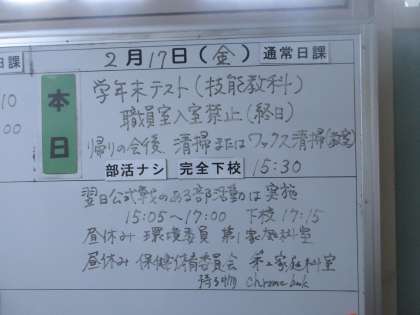 日課
2月17日(金) 通常日課
10
00
本日
学年末テスト(技能教科)
職員室入室禁止(終日)
帰りの会後 清掃またはワックス清掃(教室)
部活ナシ 完全下校 15:30
翌日公式戦のある部活動は実施
15:05~17:00 下校 17:15
昼休み 環境委員 第1家庭科室
昼休み 保健体育委員会 第2家庭科室
持ち物 Chromebook